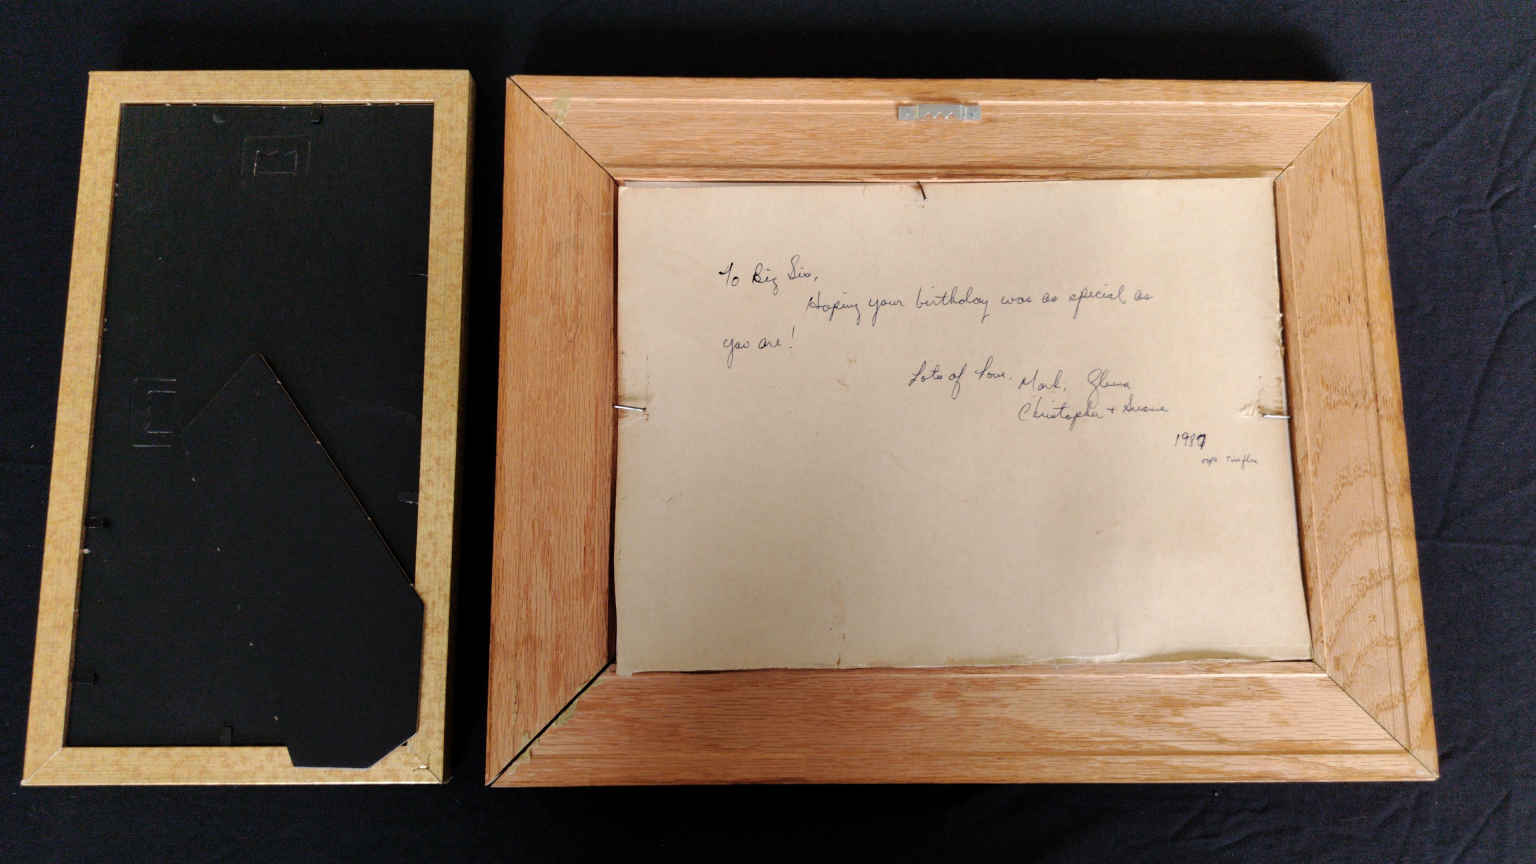 To Big Sis,
Hoping your birthday was as special as
you are!
Lots of Love. Mark,
Christopher +
1987